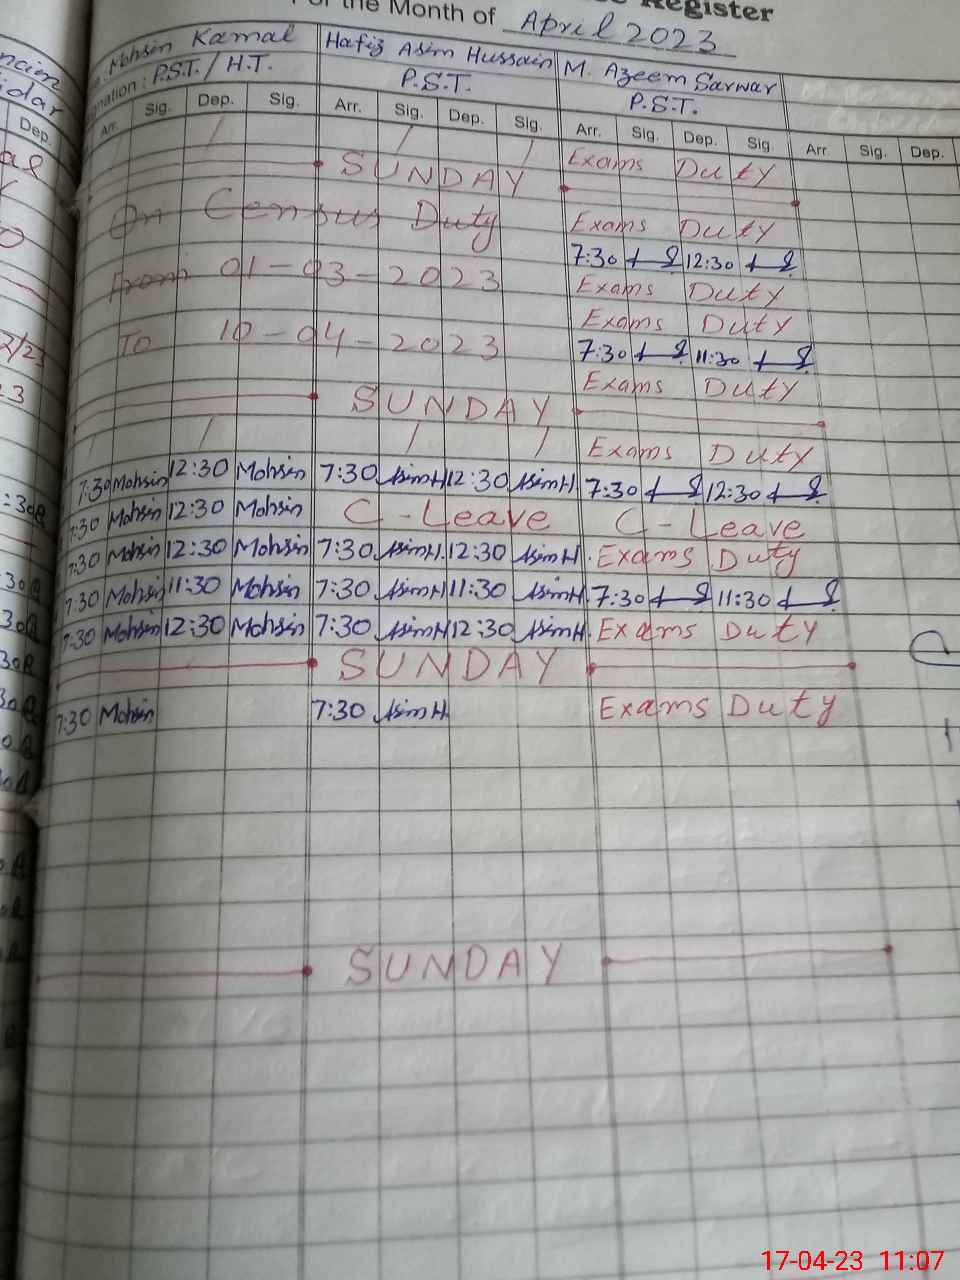 For the Month of April 2023
Register
Mohsin Kamal Hafiz Asim Hussain M. Azeem Sarwar
P.S.T. / H.T. P.S.T. P.S.T.
Dep. Arr. Sig. Dep. Sig. Arr. Sig. Dep. Sig. Arr. Sig. Dep. Sig. Arr. Sig. Dep.
Exams Duty
SUNDAY
On Census Duty Exams Duty
7:30 12:30
From 01-03-2023 Exams Duty
Exams Duty
To 10-04-2023 7:30 11:30
Exams Duty
SUNDAY
Exams Duty
7:30 Mohsin 12:30 Mohsin 7:30 AsimH 12:30 AsimH. 7:30 12:30
7:30 Mohsin 12:30 Mohsin C-Leave C-Leave
7:30 Mohsin 12:30 Mohsin 7:30 AsimH. 12:30 AsimH. Exams Duty
7:30 Mohsin 11:30 Mohsin 7:30 AsimH 11:30 AsimH. 7:30 11:30
7:30 Mohsin 12:30 Mohsin 7:30 AsimH 12:30 AsimH. Exams Duty
SUNDAY
7:30 Mohsin 7:30 AsimH Exams Duty
SUNDAY
17-04-23 11:07